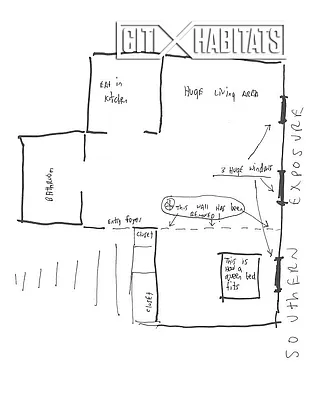 CITI HABITATS
EAT in
kitchen
HUGE LIVING AREA
3 HUGE windows
BATHROOM
THIS WALL HAS been
REMOVED!
entry foyer
closet
closet
This is
how a
queen bed
fits
SOUTHERN EXPOSURE